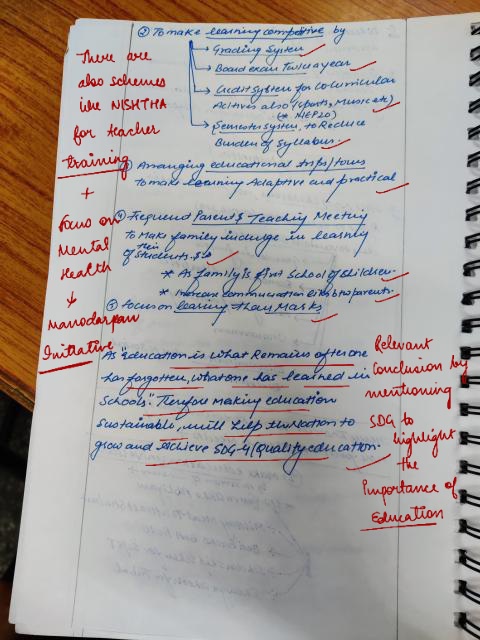 ② To make learning competitive by
→ Grading System
→ Board exam twice a year
→ Credit System for Co curricular
Activies also (Sports, Music etc)
(* NEP20)
→ Semester system, to Reduce
Burden of Syllabus.
③ Arranging educational trips/tours
To make learning Adaptive and practical
④ Frequent Parents Teaching Meeting
To Make family indulge in learning
of their students.
* As family is first School of Children.
* Increase communication b/w parents.
⑤ Focus on learing than Marks
As "Education is what Remains after one
has forgotten, what one has learned in
Schools". Therefore making education
Sustainable, will help the Nation to
grow and Achieve SDG-4 (Quality education.
There are
also schemes
like NISHTHA
for teacher
training
+
Focus on
Mental
Health
↓
Manodarpan
Initiative
Relevant
Conclusion by
mentioning
SDG to
highlight
the
Importance of
Education